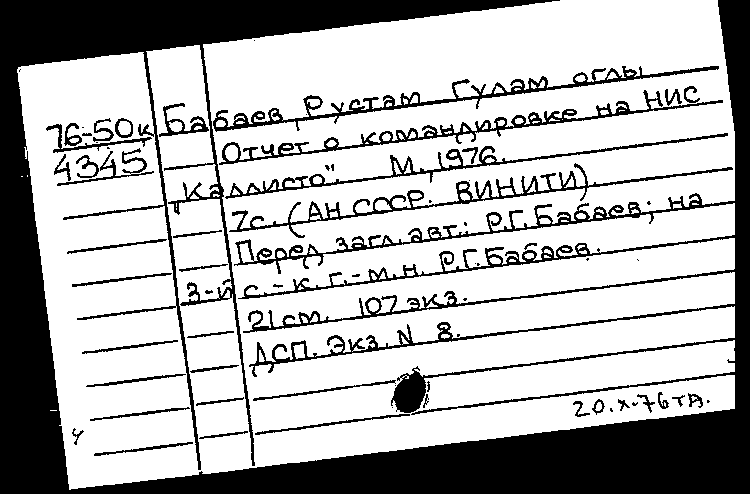 76-50к Бабаев, Рустам Гулам оглы
4345 Отчет о командировке на НИС
"Каллисто". М., 1976.
7с. (АН СССР. ВИНИТИ).
Перед загл. авт.: Р.Г.Бабаев; на
3-й с.-к. г.-м.н. Р.Г.Бабаев.
21 см. 107 экз.
ДСП. Экз. N 8.
20.X-76 тд.